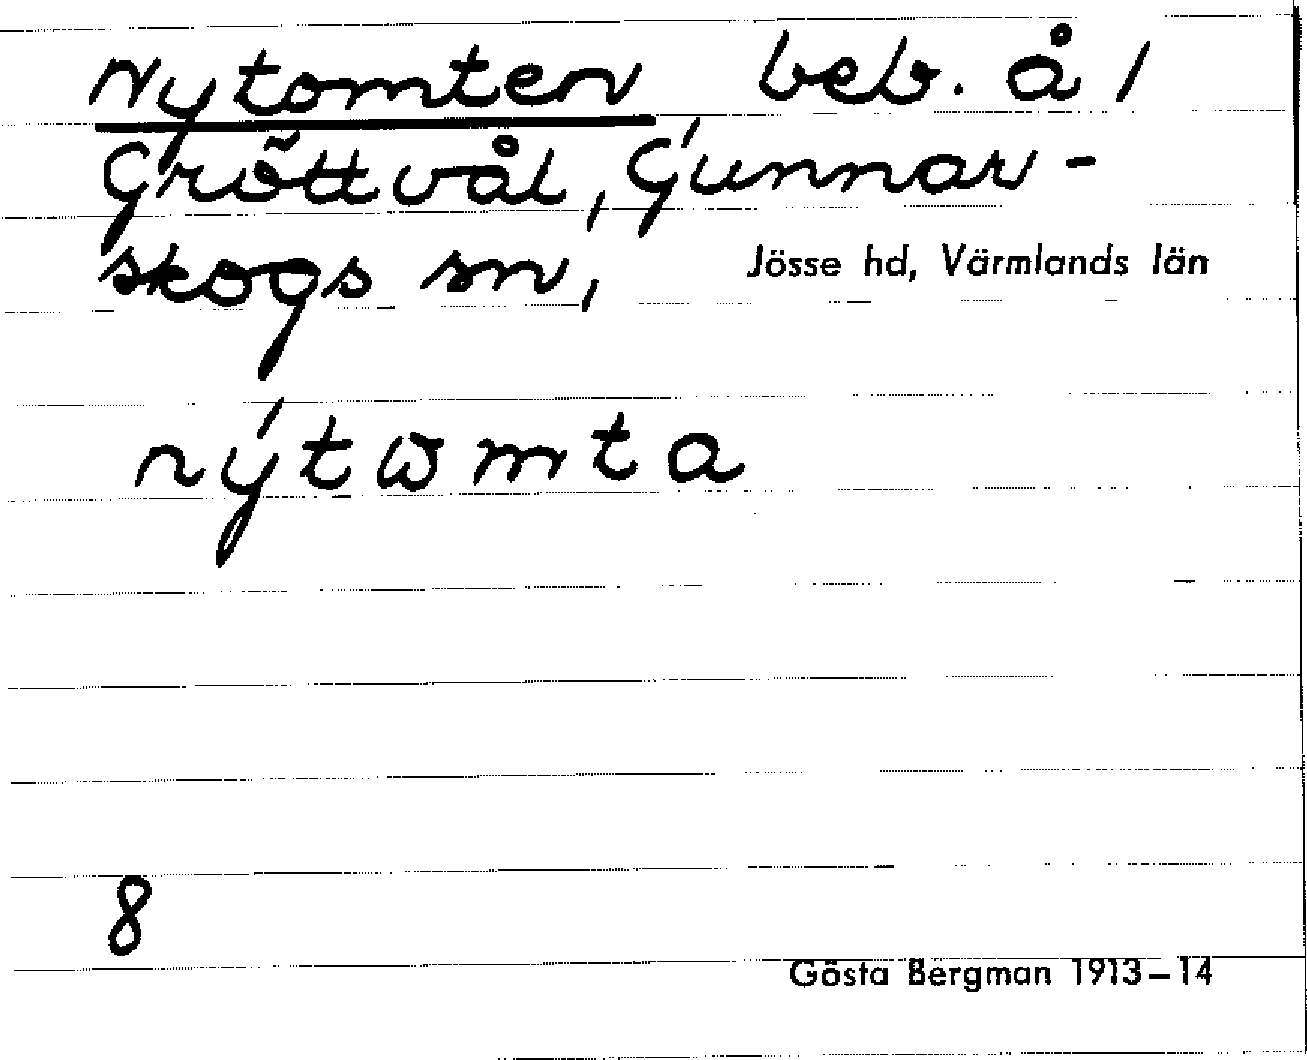 Nytomten beb. å 1
Gröttvål, Gunnar-
skogs sn, Jössе hd, Värmlands län
nýtωmta
8
Gösta Bergman 1913–14